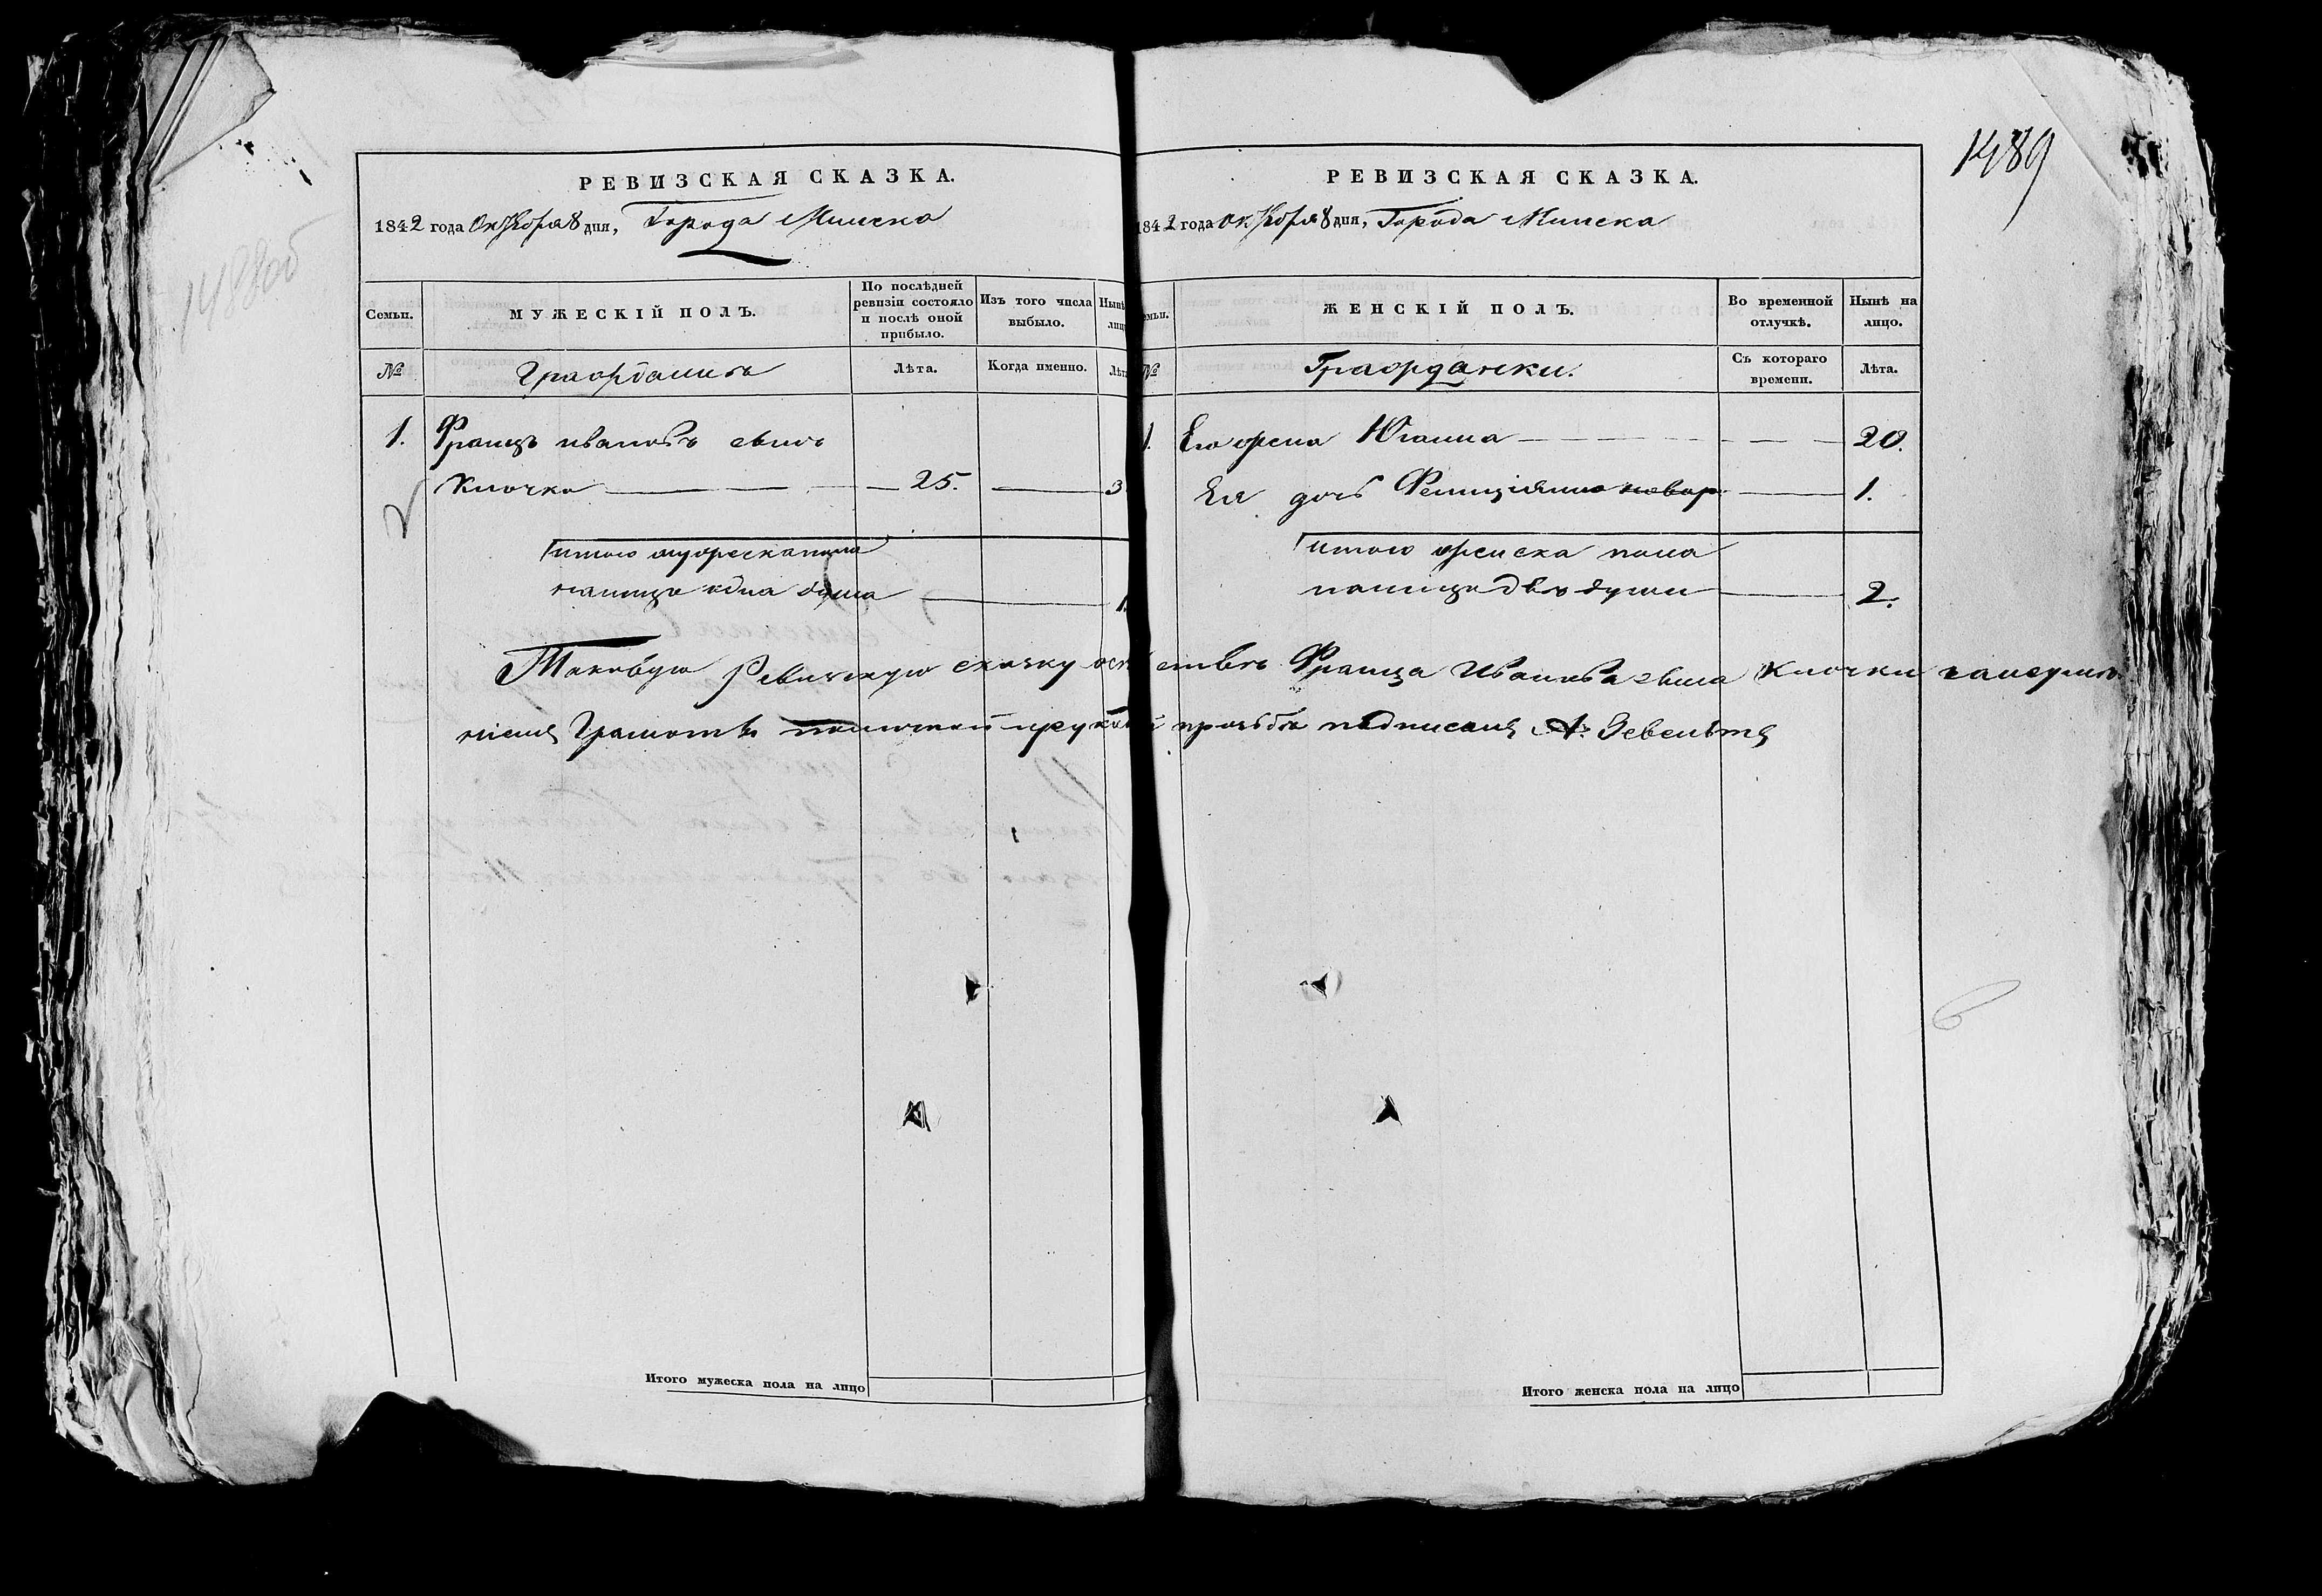 1488об
РЕВИЗСКАЯ СКАЗКА.
1842 года Октября 8 дня, Города Минска
Семьи.
МУЖЕСКІЙ ПОЛЪ.
По послѣдней
ревизіи состояло
и послѣ оной
прибыло.
Изъ того числа
выбыло.
Нынѣ
лиц
№
Гражданинъ
Лѣта.
Когда именно.
Лѣт
1. Францъ ивановъ сынъ
Клочко 25. 3
итого мужеска пола
налицо одна душа 1.
1489
РЕВИЗСКАЯ СКАЗКА.
1842 года октября 8 дня, Города Минска
емьи.
ЖЕНСКІЙ ПОЛЪ.
Во временной
отлучкѣ.
Нынѣ на
лицо.
№
Гражданки.
Съ котораго
времени.
Лѣта.
1. Его жена Юганна 20.
Ея дочь 1.
итого женска пола
налицо двѣ души 2.
Таковую Ревизскую сказку Франца Иванова сына Клочки
Грамотѣ прозьбѣ подписалъ А.
Итого мужеска пола на лицо
Итого женска пола на лицо